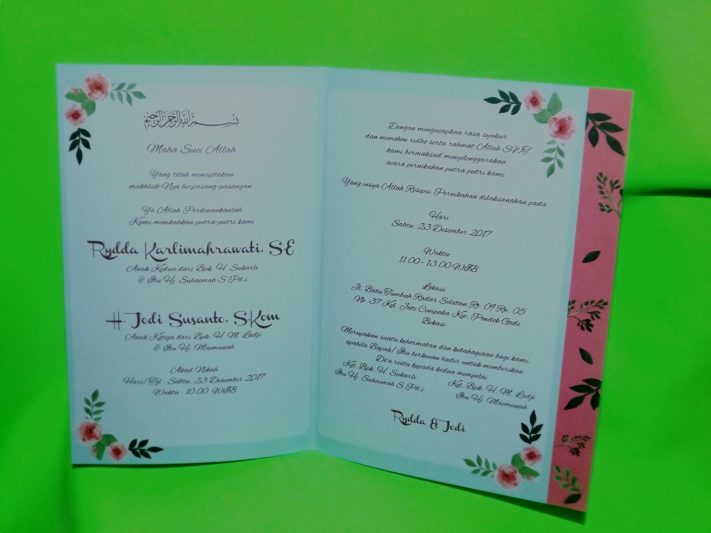 بسم الله الرحمن الرحيم
Maha Suci Allah
Yang telah menciptakan
makhluk-Nya berpasang-pasangan
Ya Allah Perkenankanlah
Kami menikahkan putra-putri kami
Rydda Karlimahrawati, S.E
Anak Kedua dari Bpk. H. Sukarli
& Ibu Hj. Suhaemah S.Pd.i
H. Jodi Susanto, S.Kom
Anak Ketiga dari Bpk. H. M. Lodji
& Ibu Hj. Maemunah
Akad Nikah
Hari/Tgl : Sabtu, 23 Desember 2017
Waktu : 10.00 WIB
Dengan mengucapkan rasa syukur
dan memohon ridho serta rahmat Allah SWT
kami bermaksud menyelenggarakan
acara pernikahan putra putri kami
Yang insya Allah Resepsi Pernikahan dilaksanakan pada :
Hari :
Sabtu, 23 Desember 2017
Waktu :
11.00 - 13.00 WIB
Lokasi :
Jl. Batu Tumbuh Radar Selatan Rt. 09 Rw. 05
No. 37 Kel. Jati Cempaka Kec. Pondok Gede
Bekasi
Merupakan suatu kehormatan dan kebahagiaan bagi kami,
apabila Bapak/ Ibu berkenan hadir untuk memberikan
Doa restu kepada kedua mempelai
Kel. Bpk. H. Sukarli
Ibu Hj. Suhaemah S.Pd.i
Kel. Bpk. H. M. Lodji
Ibu Hj. Maemunah
Rydda & Jodi